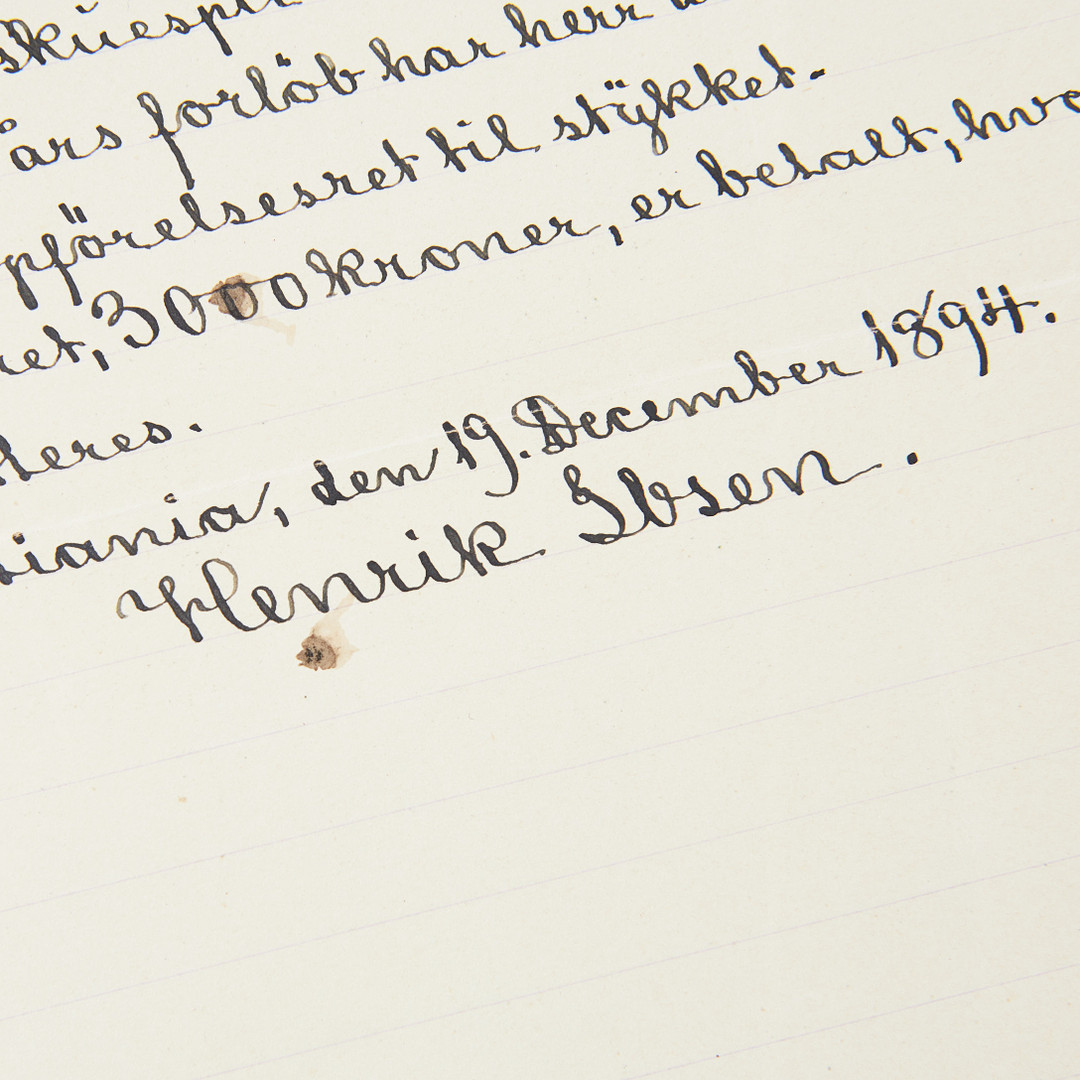 skuespil
års forløb har herr
pförelsesret til stÿkket.
ret, 3000 kroner, er betalt, hvo
teres.
siania, den 19. December 1894.
Henrik Ibsen.